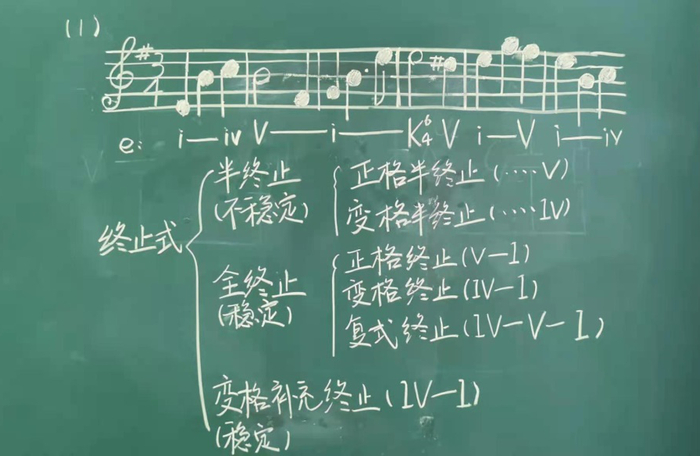 (1)
# 3 4 #
e: i—iv V——i——K6 4 V i—V i—iv
半终止 正格半终止(····V)
(不稳定) 变格半终止(····IV)
终止式
全终止 正格终止(V—I)
(稳定) 变格终止(IV—I)
复式终止(IV—V—I)
变格补充终止(IV—I)
(稳定)